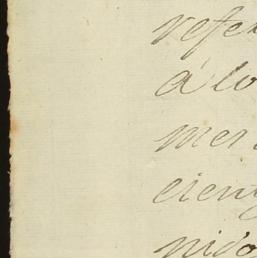 refer
á lo
mer
cien
nido